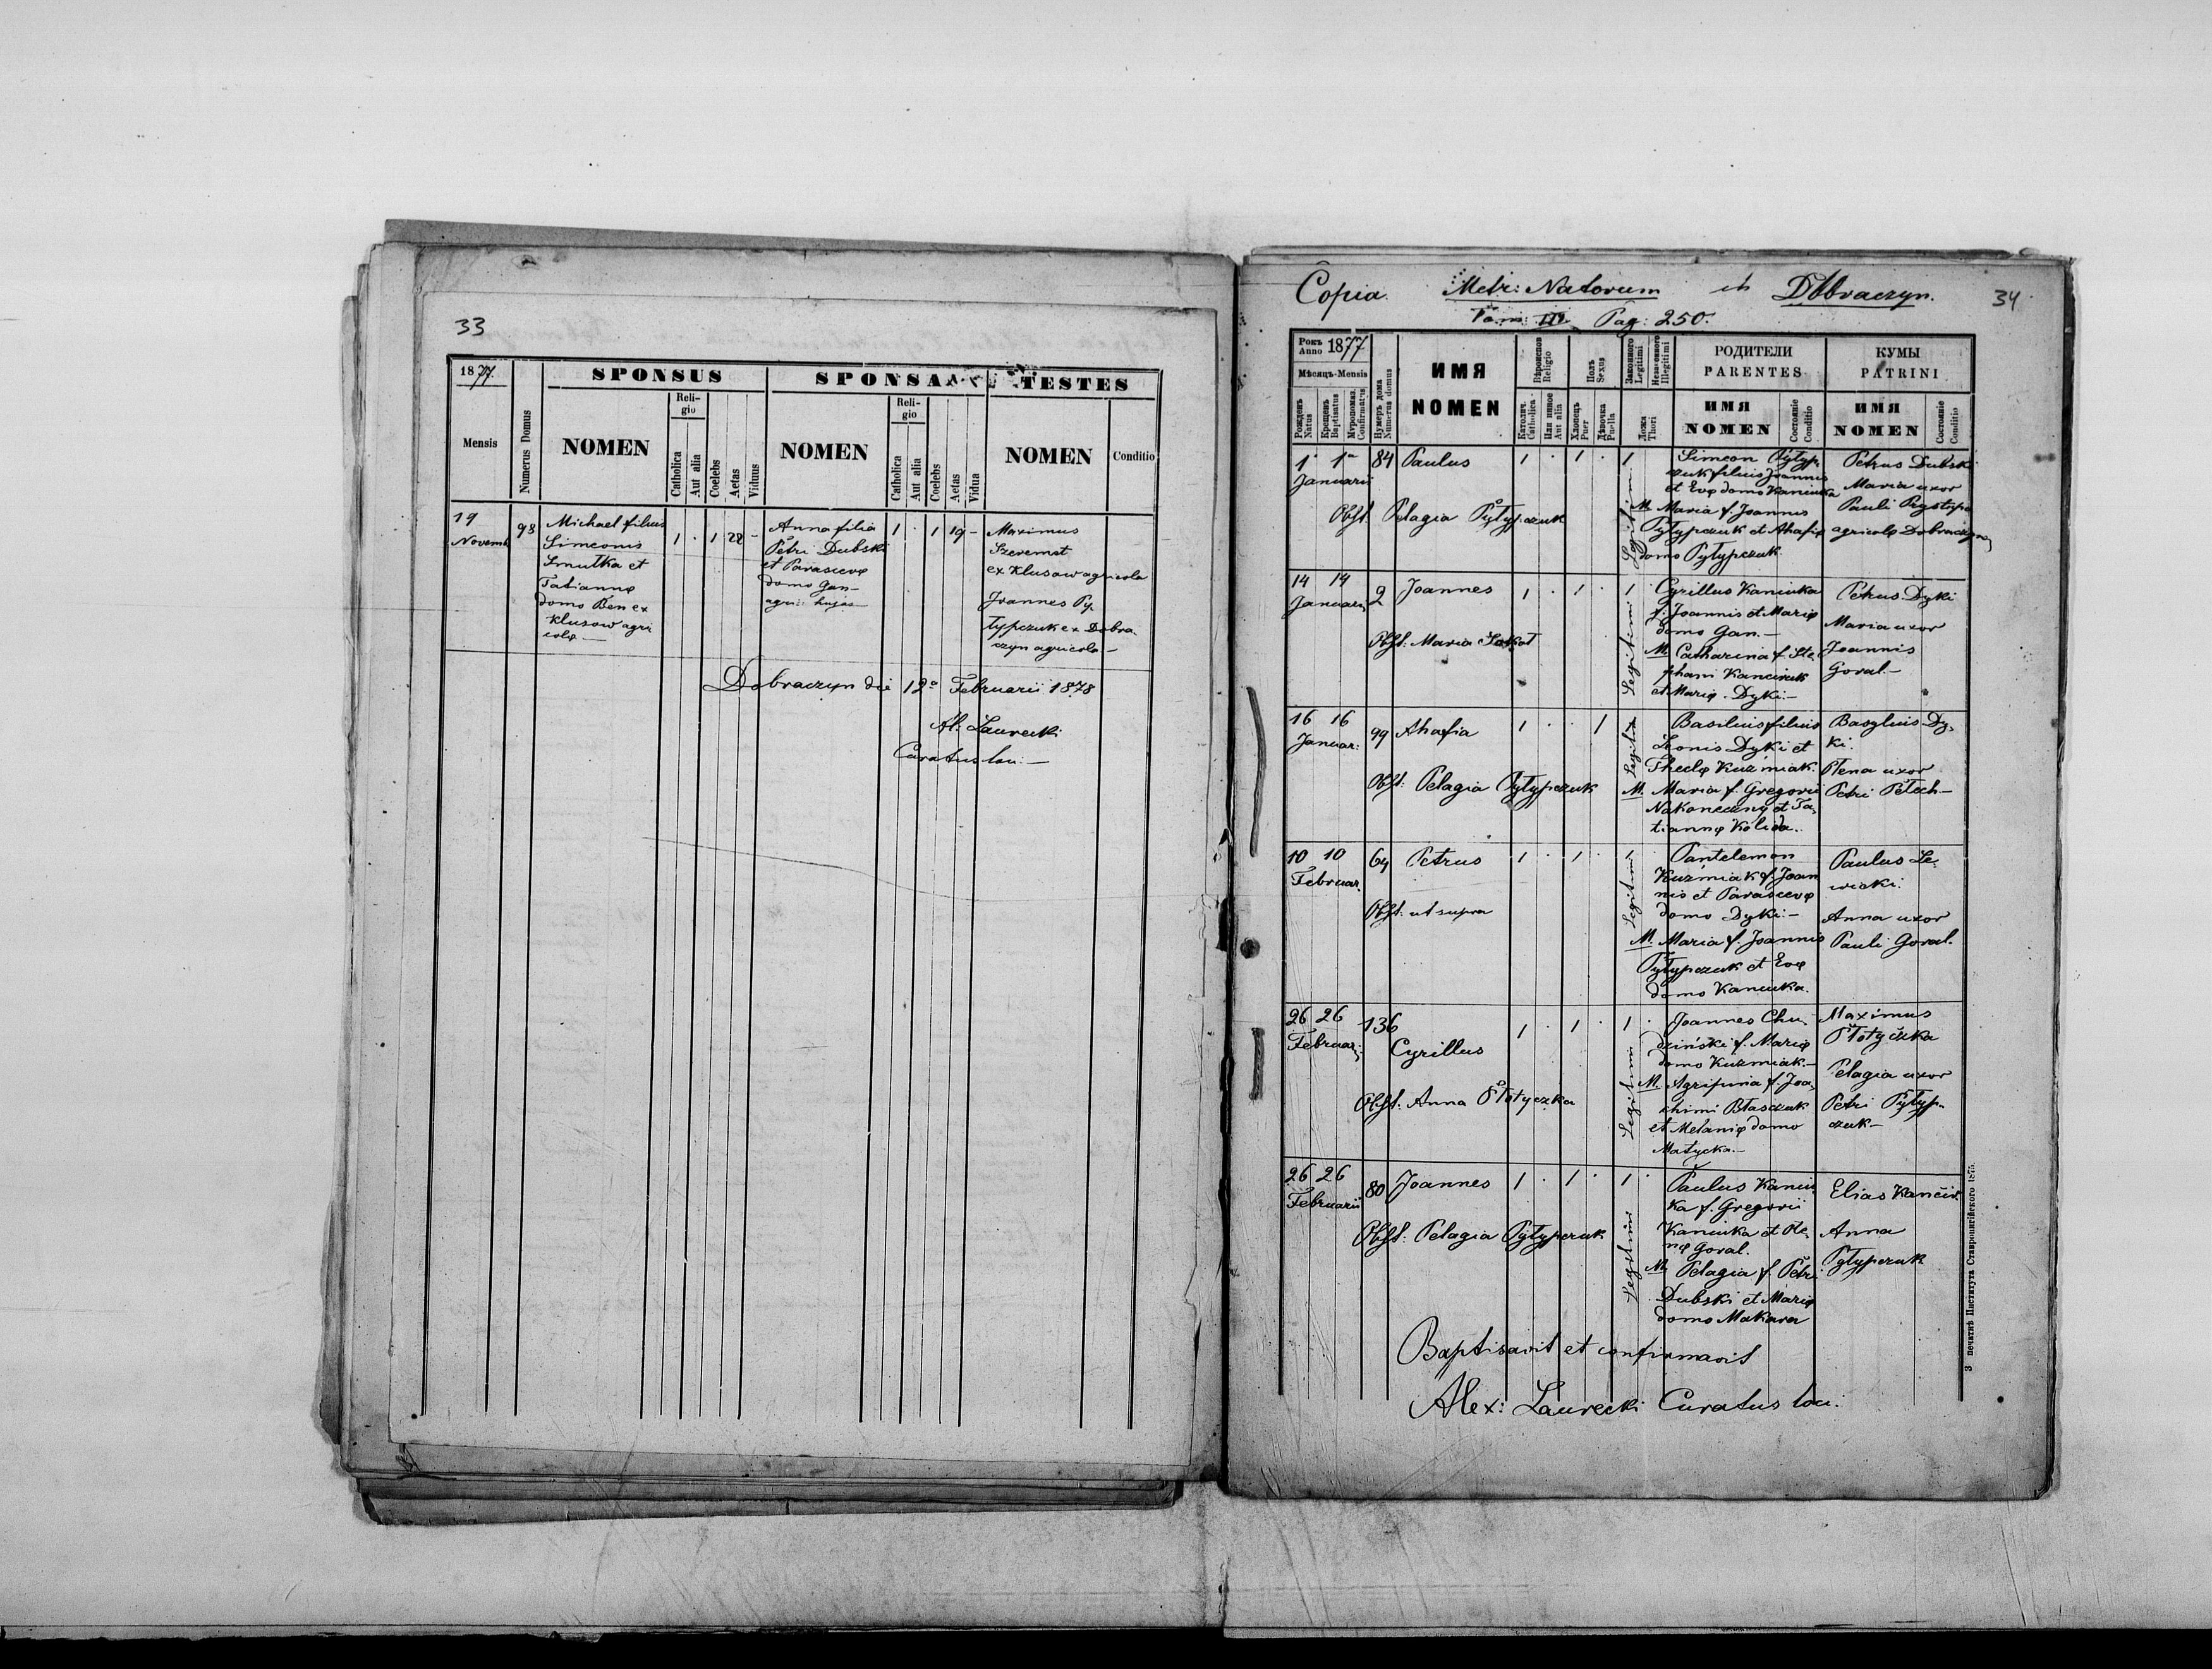 33
1877.
SPONSUS
SPONSA
TESTES
Mensis
Numerus Domus
NOMEN
Religio
Catholica
Aut alia
Coelebs
Aetas
Viduus
NOMEN
Religio
Catholica
Aut alia
Coelebs
Aetas
Vidua
NOMEN
Conditio
19
Novemb.
93
Michael filius
Simeonis
Smutka et
Tatiannę
domo Ben ex
Klusow agri
colę —
1 . 1 28 -
Anna filia
Petri Dubski
et Parascevę
domo Gan—
agri: hujas
1 . 1 19 -
Maximus
Szeremet
ex Klusow agricola
Joannes Py
typczuk ex Dobra-
czyn agricola —
Dobraczyn die 12ª Februarii 1878
Al. Laurecki
Curatus loci —
Copia. Metr: Natorum in Dobraczyn.
34
Tom: III. Pag: 250.
Рокъ
Anno 1877
Мѣсяцъ-Mensis
Рожденъ
Natus
Крещенъ
Baptisatus
Мѵропомаз.
Confirmatus
Нумеръ дома
Numerus domus
ИМЯ
NOMEN
Вѣроиспов
Religio
Католич.
Catholica
Или инное
Aut alia
Полъ
Sexus
Хлопецъ
Puer
Дѣвочка
Puella
Законного
Legitimi
Незаконного
Illegitimi
Ложа
Thori
РОДИТЕЛИ
PARENTES
ИМЯ
NOMEN
Состояніе
Conditio
КУМЫ
PATRINI
ИМЯ
NOMEN
Состояніе
Conditio
1 1ª
Januarii
84 Paulus
1 . 1 . 1
Legitimi
Obst. Pelagia Pyłypczuk
Simeon Pyłyp-
czuk filius Joannis
et Evę domo Kaniuka
M. Maria f. Joannis
Pyłypczuk et Ahafię
domo Pyłypczuk
Petrus Dubski
Maria uxor
Pauli Prystupa
agricolę Dobraczyn
14 14
Januarii
2 Joannes
1 . 1 . 1
Legitimi
Obst. Maria Sokoł
Cyrillus Kaniuka
f. Joannis et Marię
domo Gan.—
M. Catharina f. Ste-
phani Kanciruk
et Marię Dyki.—
Petrus Dyki
Maria uxor
Joannis
Goral.—
16 16
Januar:
99 Ahafia
1 . . 1
Obst: Pelagia Pyłypczuk
Basilius filius
Leonis Dyki et
Theclę Kuźmiak.
M. Maria f. Gregorii
Nakoneczny et Ta-
tiannę Kolida.
Basylius Dy-
ki.
Olena uxor
Petri Pełech—
10 10
Februar.
64 Petrus
1 . 1 . 1
Legitimi
Obst. ut supra
Pantelemon
Kuzmiak f. Joan
nis et Parascevę
domo Dyki.—
M. Maria f. Joannis
Pyłypczuk et Evę
domo Kaniuka.
Paulus Le-
wicki.
Anna uxor
Pauli Goral.
26 26
Februar.
136
Cyrillus
1 . 1 . 1 .
Legitimi
Obst: Anna Płotyczka
Joannes Chu-
dziński f. Marię
domo Kuzmiak.—
M. Agripina f. Joa-
chimi Błasczuk
et Melanię domo
Matycka.—
Maximus
Płotyczka
Pelagia uxor
Petri Pyłyp-
czuk—
26 26
Februarii
80 Joannes
1 . 1 . 1 .
Legitimi
Obst: Pelagia Pyłypczuk
Paulus Kaniu
ka f. Gregorii
Kaniuka et Ole
nę Goral.
M. Pelagia f. Petri
Dubski et Marię
domo Makara
Elias Kancir.
Anna
Pyłypczuk
Baptisavit et confirmavit
Alex: Laurecki Curatus loci.
З печатнѣ Института Ставропигійского 1875.